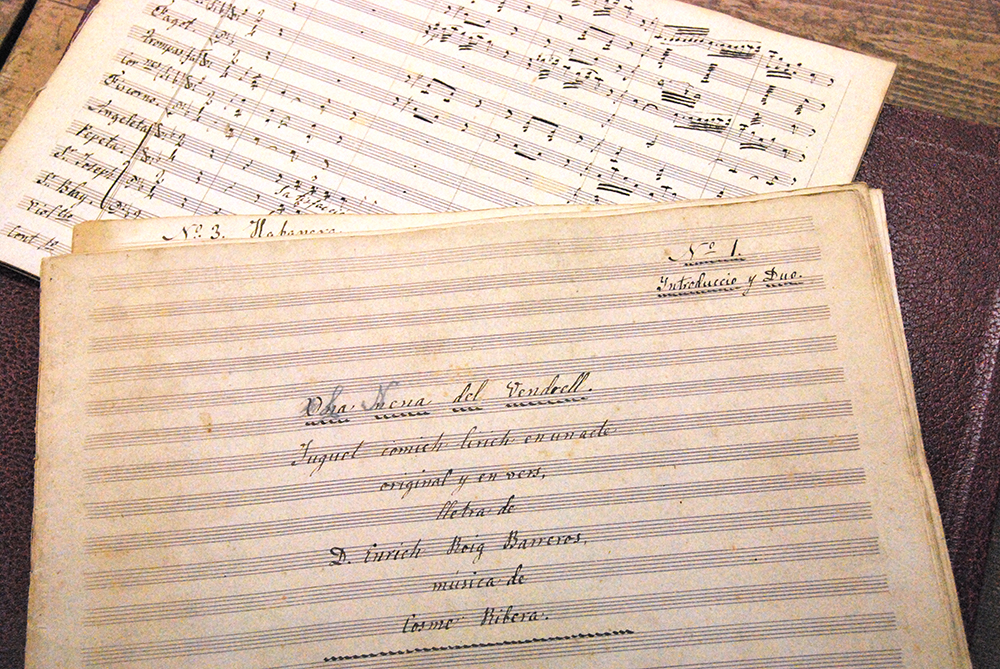 Fagot.
Trompas fa
Cor
Fiscorno.
Angeleta
Pepeta.
St. Joseph
St. Blay.
Cont.
Nº. 3. Habanera.
Nº 1.
Introduccio y Duo.
Nena del Vendrell.
Juguet cómich lírich en un acte
original y en vers,
lletra de
D. Enrich Roig Barreros,
música de
Cosme Ribera.